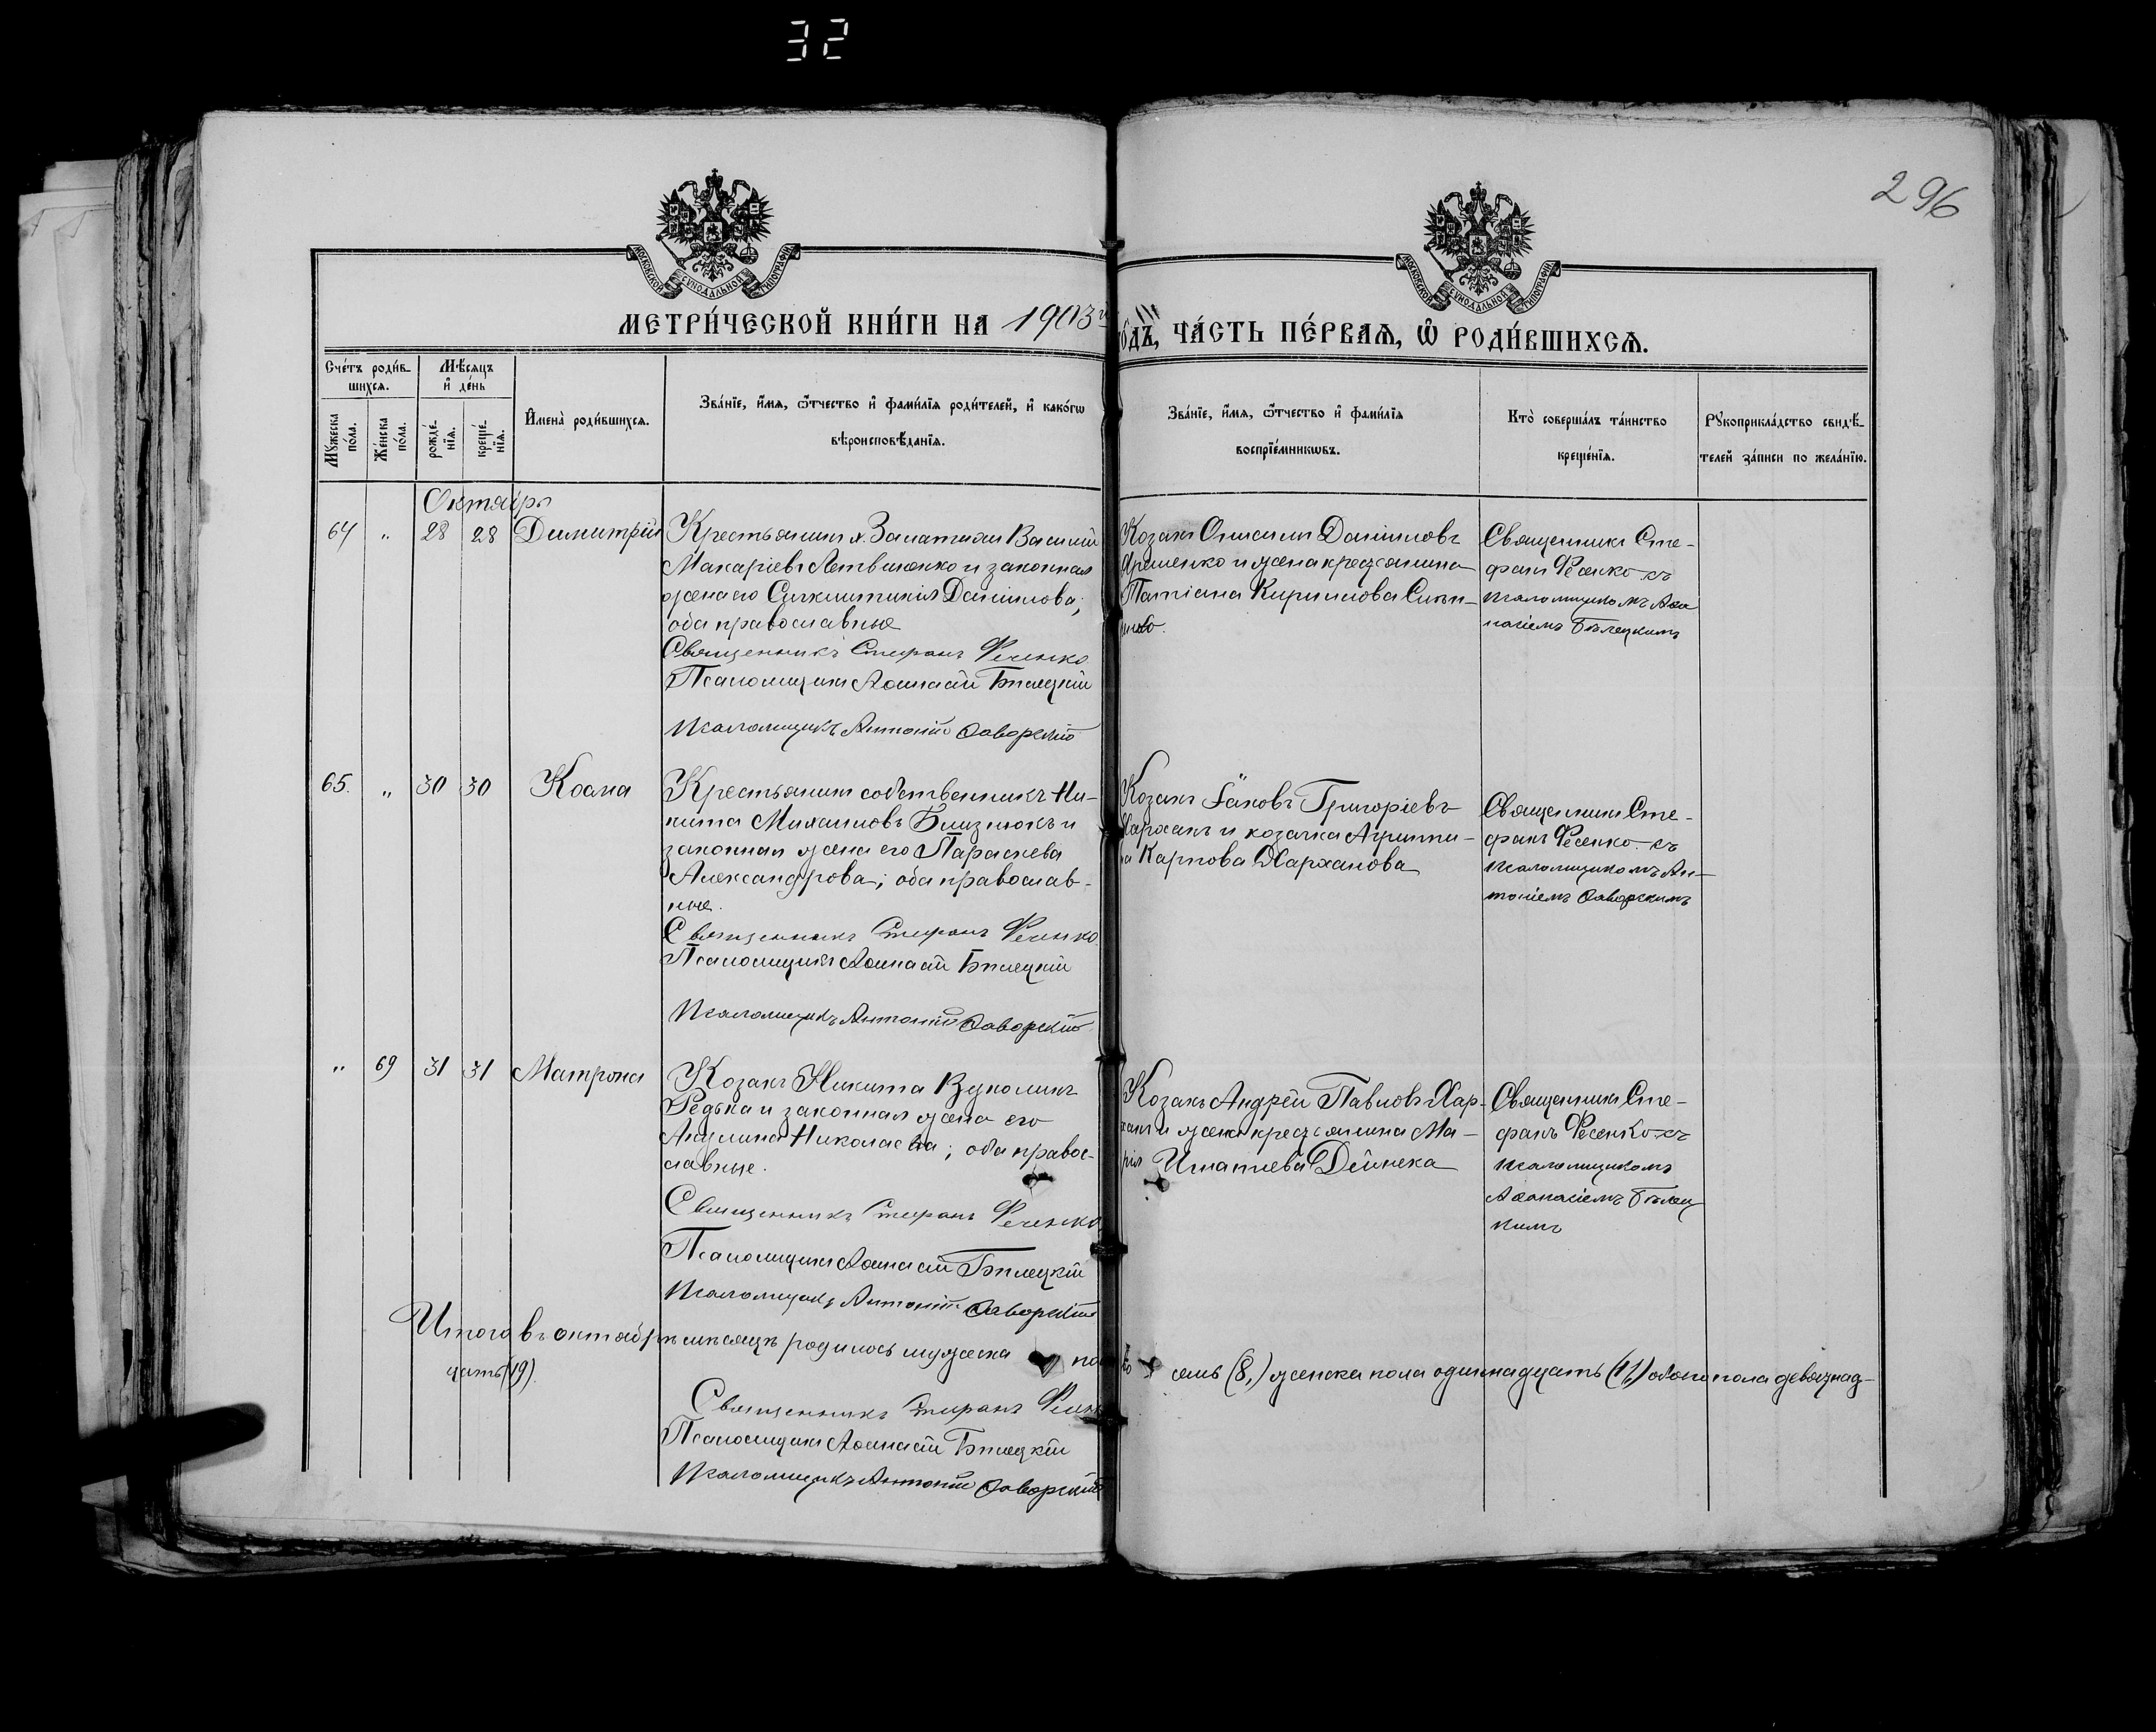 32
296
МОСКОВСКОЙ СѴНОДАЛЬНОЙ ТИПОГРАФІИ
МОСКОВСКОЙ СѴНОДАЛЬНОЙ ТИПОГРАФІИ
МЕТРИ́ЧЕСКОЙ КНИ́ГИ НА 1903й
о́дъ, ЧА́СТЬ ПЕ́РВАѦ, Ѡ҆ РОДИ́ВШИХСѦ.
Сче́тъ роди́в-
шихсѧ.
Мѣ́сѧцъ
и҆ де́нь
Мꙋ́жеска по́ла.
Же́нска по́ла.
рожде́-
нїѧ.
креще́-
нїѧ.
И҆мена̀ роди́вшихсѧ.
Зва́нїе, и҆́мѧ, ѻ҆́тчество и҆ фами́лїѧ роди́телей, и҆ како́гѡ
вѣроисповѣ́данїѧ.
Зва́нїе, и҆́мѧ, ѻ҆́тчество и҆ фами́лїѧ
воспрїе́мникѡвъ.
Кто̀ соверша́лъ та́инство
креще́нїѧ.
Рꙋкоприкла́дство свидѣ́-
телей за́писи по жела́нїю.
Октябрь
64 „ 28 28 Димитрій
Крестьянинъ х. Василій
Макаріевъ Литвиненко и законная
жена его Синклитикія Даніилова;
оба православные
Священникъ Стефанъ Фесенко
Псаломщикъ Аѳанасій Бѣлецкій
Псаломщикъ Антоній Яворскій
Козакъ Даніиловъ
Яременко и жена крестьянина
Татіана Кириллова
Священникъ Сте-
фанъ Фесенко съ
псаломщикомъ Аѳа
насіемъ Бѣлецкимъ
65. „ 30 30 Косма
Крестьянинъ собственникъ Ни-
кита Михаиловъ Близнюкъ и
законная жена его Параскева
Александрова; оба православ-
ные.
Священникъ Стефанъ Фесенко.
Псаломщикъ Аѳанасій Бѣлецкій
Псаломщикъ Антоній Яворскій
Козакъ Іаковъ Григоріевъ
Харханъ и козачка Агриппи-
на Карпова Харханова
Священникъ Сте-
фанъ Фесенко съ
псаломщикомъ Ан-
тоніемъ Яворскимъ
„ 69 31 31 Матрона
Козакъ Никита Вуколинъ
Редька и законная жена его
Акулина Николаева; оба право-
славные.
Священникъ Стефанъ Фесенко
Псаломщикъ Аѳанасій Бѣлецкій
Псаломщикъ Антоній Яворскій
Козакъ Андрей Павловъ Хар-
ханъ и жена крестьянина Ма-
рія Игнатіева Дейнека
Священникъ Сте-
фанъ Фесенко съ
псаломщикомъ
Аѳанасіемъ Бѣлец
кимъ
Итого въ октябрѣ мѣсяцѣ родилось мужеска по семь (8,) женска пола одиннадцать (11,) обоего пола девятнад-
цать (19).
Священникъ Стефанъ Фесенк
Псаломщикъ Аѳанасій Бѣлецкій
Псаломщикъ Антоній Яворскій